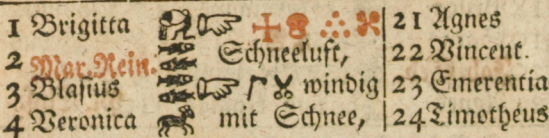 1 Brigitta 21 Agnes
2 Mar. Rein. Schneeluft, 22 Vincent.
3 Blasius windig 23 Emerentia
4 Veronica mit Schnee, 24 Timotheus